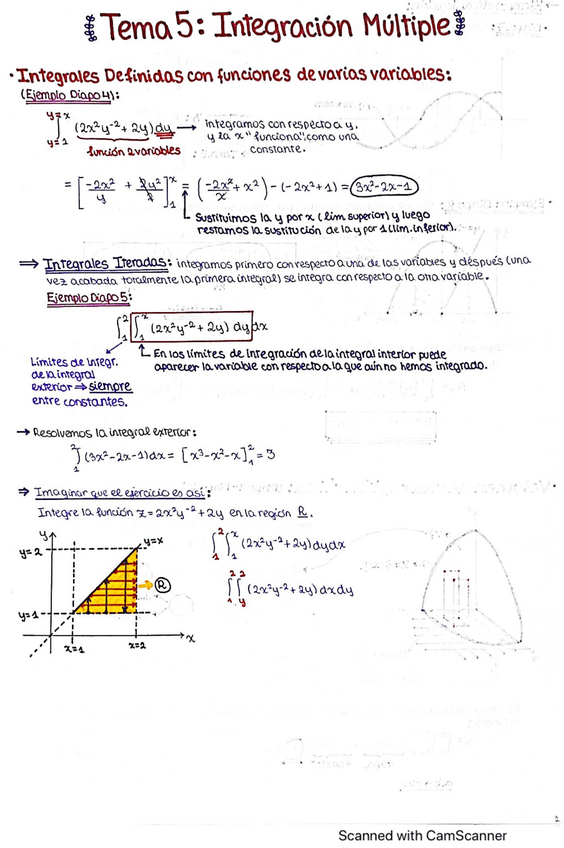 Tema 5: Integración Múltiple
· Integrales Definidas con funciones de varias variables:
(Ejemplo Diapo 4):
∫_{y=1}^{y=x} (2x²y⁻² + 2y) dy → integramos con respecto a y,
y la x "funciona" como una
constante.
función 2 variables
= [-2x²/y + 2y²/2]₁ˣ = (-2x²/x + x²) - (-2x² + 1) = 3x² - 2x - 1
Sustituimos la y por x (lím superior) y luego
restamos la sustitución de la y por 1 (lím. inferior).
⇒ Integrales Iteradas: integramos primero con respecto a una de las variables y después (una
vez acabada totalmente la primera integral) se integra con respecto a la otra variable.
Ejemplo Diapo 5:
∫₁² ∫₁ˣ (2x²y⁻² + 2y) dy dx
En los límites de integración de la integral interior puede
aparecer la variable con respecto a la que aún no hemos integrado.
Límites de integr.
de la integral
exterior ⇒ siempre
entre constantes.
→ Resolvemos la integral exterior:
∫₁² (3x² - 2x - 1) dx = [x³ - x² - x]₁² = 3
⇒ Imaginar que el ejercicio es así:
Integre la función z = 2x²y⁻² + 2y en la región R.
y
y=2
y=x
R
y=1
x=1
x=2
x
∫₁² ∫₁ˣ (2x²y⁻² + 2y) dy dx
∫₁² ∫_y² (2x²y⁻² + 2y) dx dy
1
Scanned with CamScanner